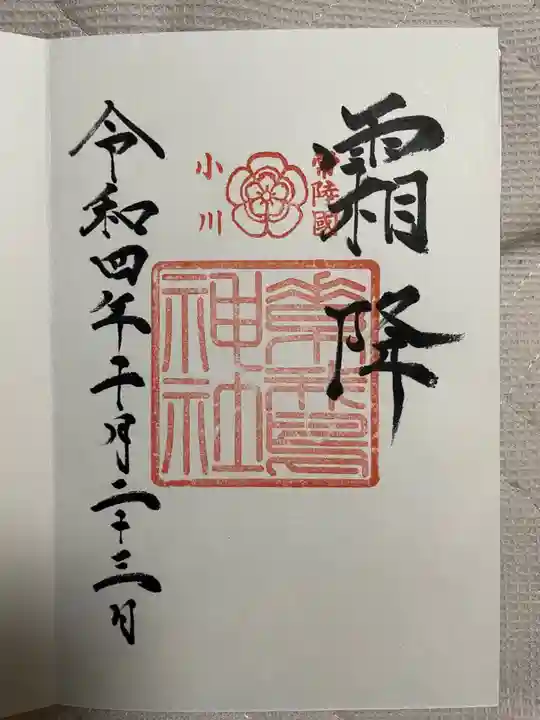 霜降
常陸國
小川
素鵞
神社
令和四年十月二十三日